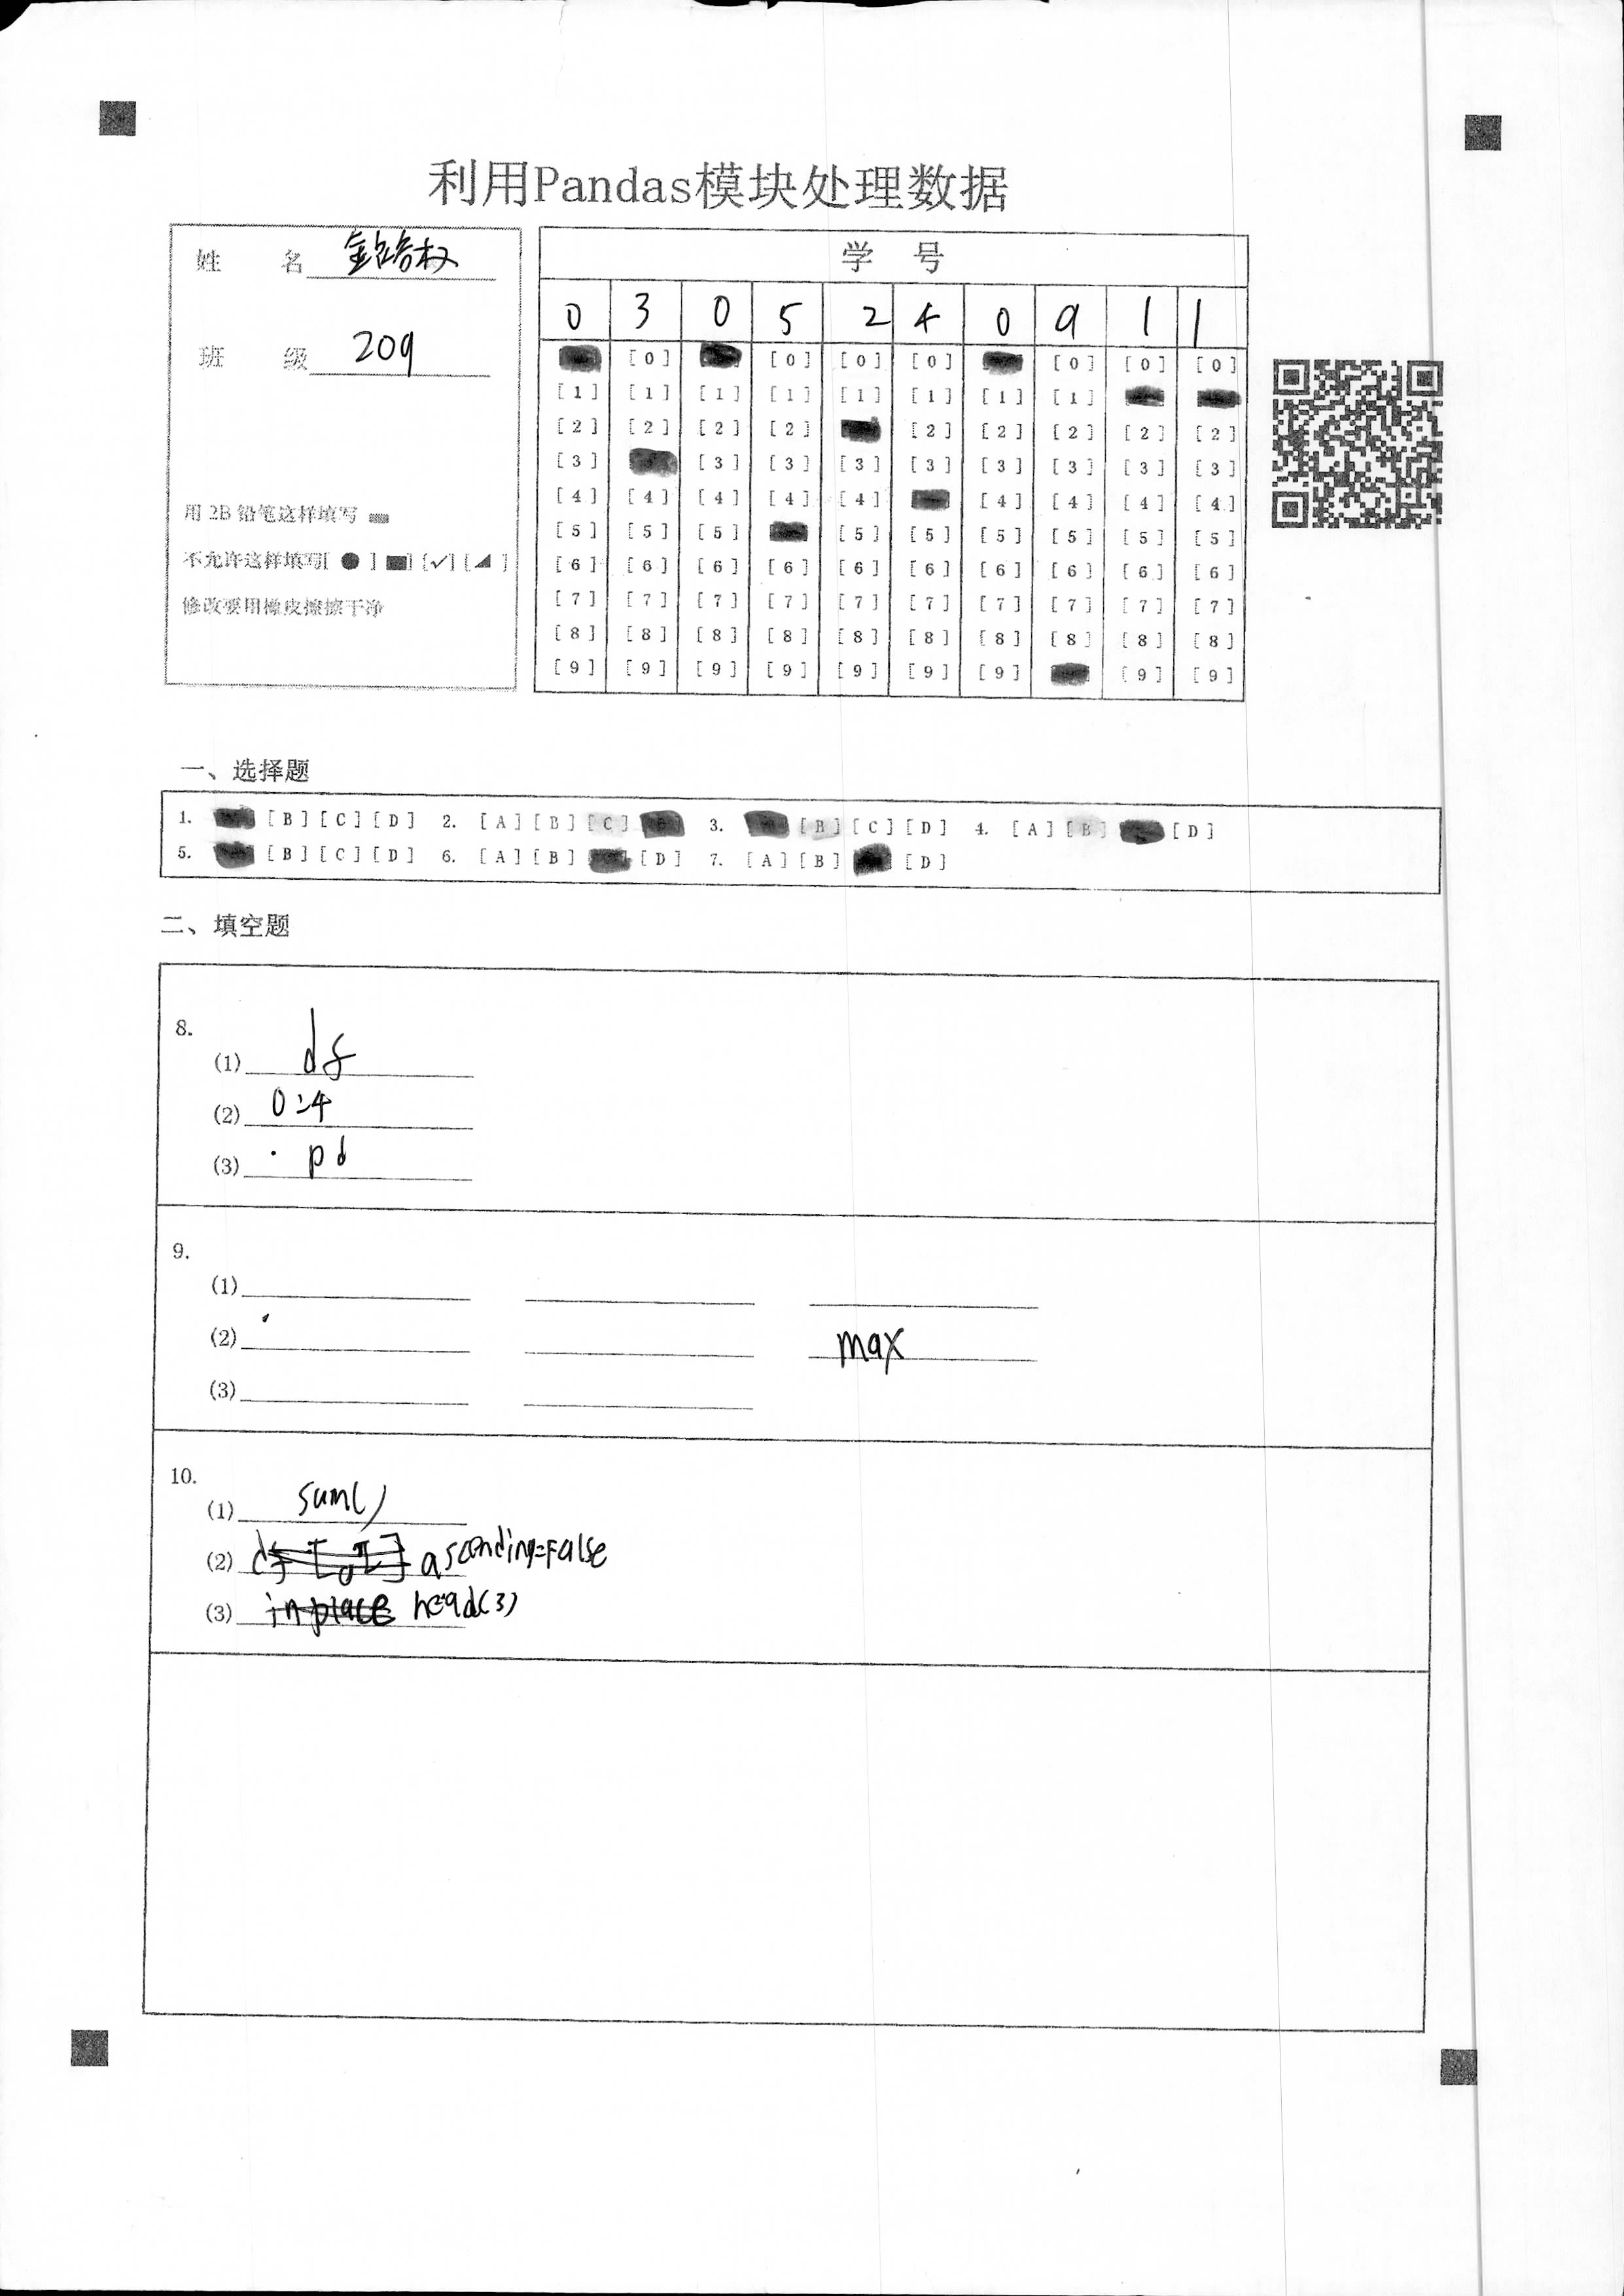 利用Pandas模块处理数据
姓 名
班 级 209
用 2B 铅笔这样填写
不允许这样填写[ ● ] [■] [✓] [◢ ]
修改要用橡皮擦擦干净
学 号
0 3 0 5 2 4 0 9 1 1
[0] [0] [0] [0] [0] [0] [0]
[1] [1] [1] [1] [1] [1] [1] [1]
[2] [2] [2] [2] [2] [2] [2] [2] [2]
[3] [3] [3] [3] [3] [3] [3] [3] [3]
[4] [4] [4] [4] [4] [4] [4] [4] [4]
[5] [5] [5] [5] [5] [5] [5] [5] [5]
[6] [6] [6] [6] [6] [6] [6] [6] [6] [6]
[7] [7] [7] [7] [7] [7] [7] [7] [7] [7]
[8] [8] [8] [8] [8] [8] [8] [8] [8] [8]
[9] [9] [9] [9] [9] [9] [9] [9] [9]
一、选择题
1. [B] [C] [D] 2. [A] [B] [C] 3. [B] [C] [D] 4. [A] [B] [D]
5. [B] [C] [D] 6. [A] [B] [D] 7. [A] [B] [D]
二、填空题
8.
(1) df
(2) 0:4
(3) pd
9.
(1)
(2) max
(3)
10.
(1) sum()
(2) ascending=False
(3) inplace head(3)